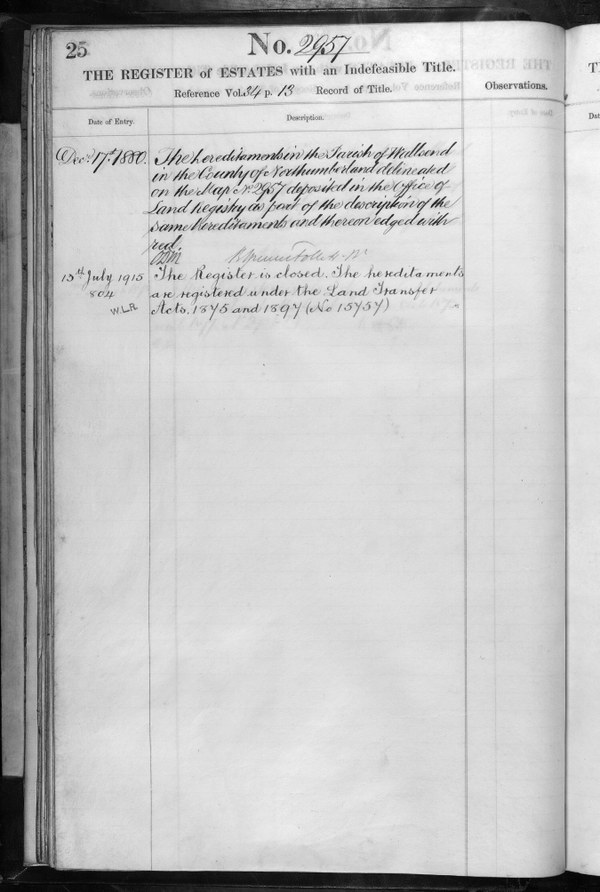 25
No. 2957
THE REGISTER of ESTATES with an Indefeasible Title.
Reference Vol. 34 p. 13 Record of Title.
Observations.
Date of Entry.
Description.
Decr. 17th 1880. The hereditaments in the Parish of Wallsend
in the County of Northumberland delineated
on the Map No. 2957 deposited in the Office of
Land Registry as part of the description of the
same hereditaments and thereon edged with
red.
15th July 1915 The Register is closed. The hereditaments
804 are registered under the Land Transfer
W.L.R Acts, 1875 and 1897 (No 15757)